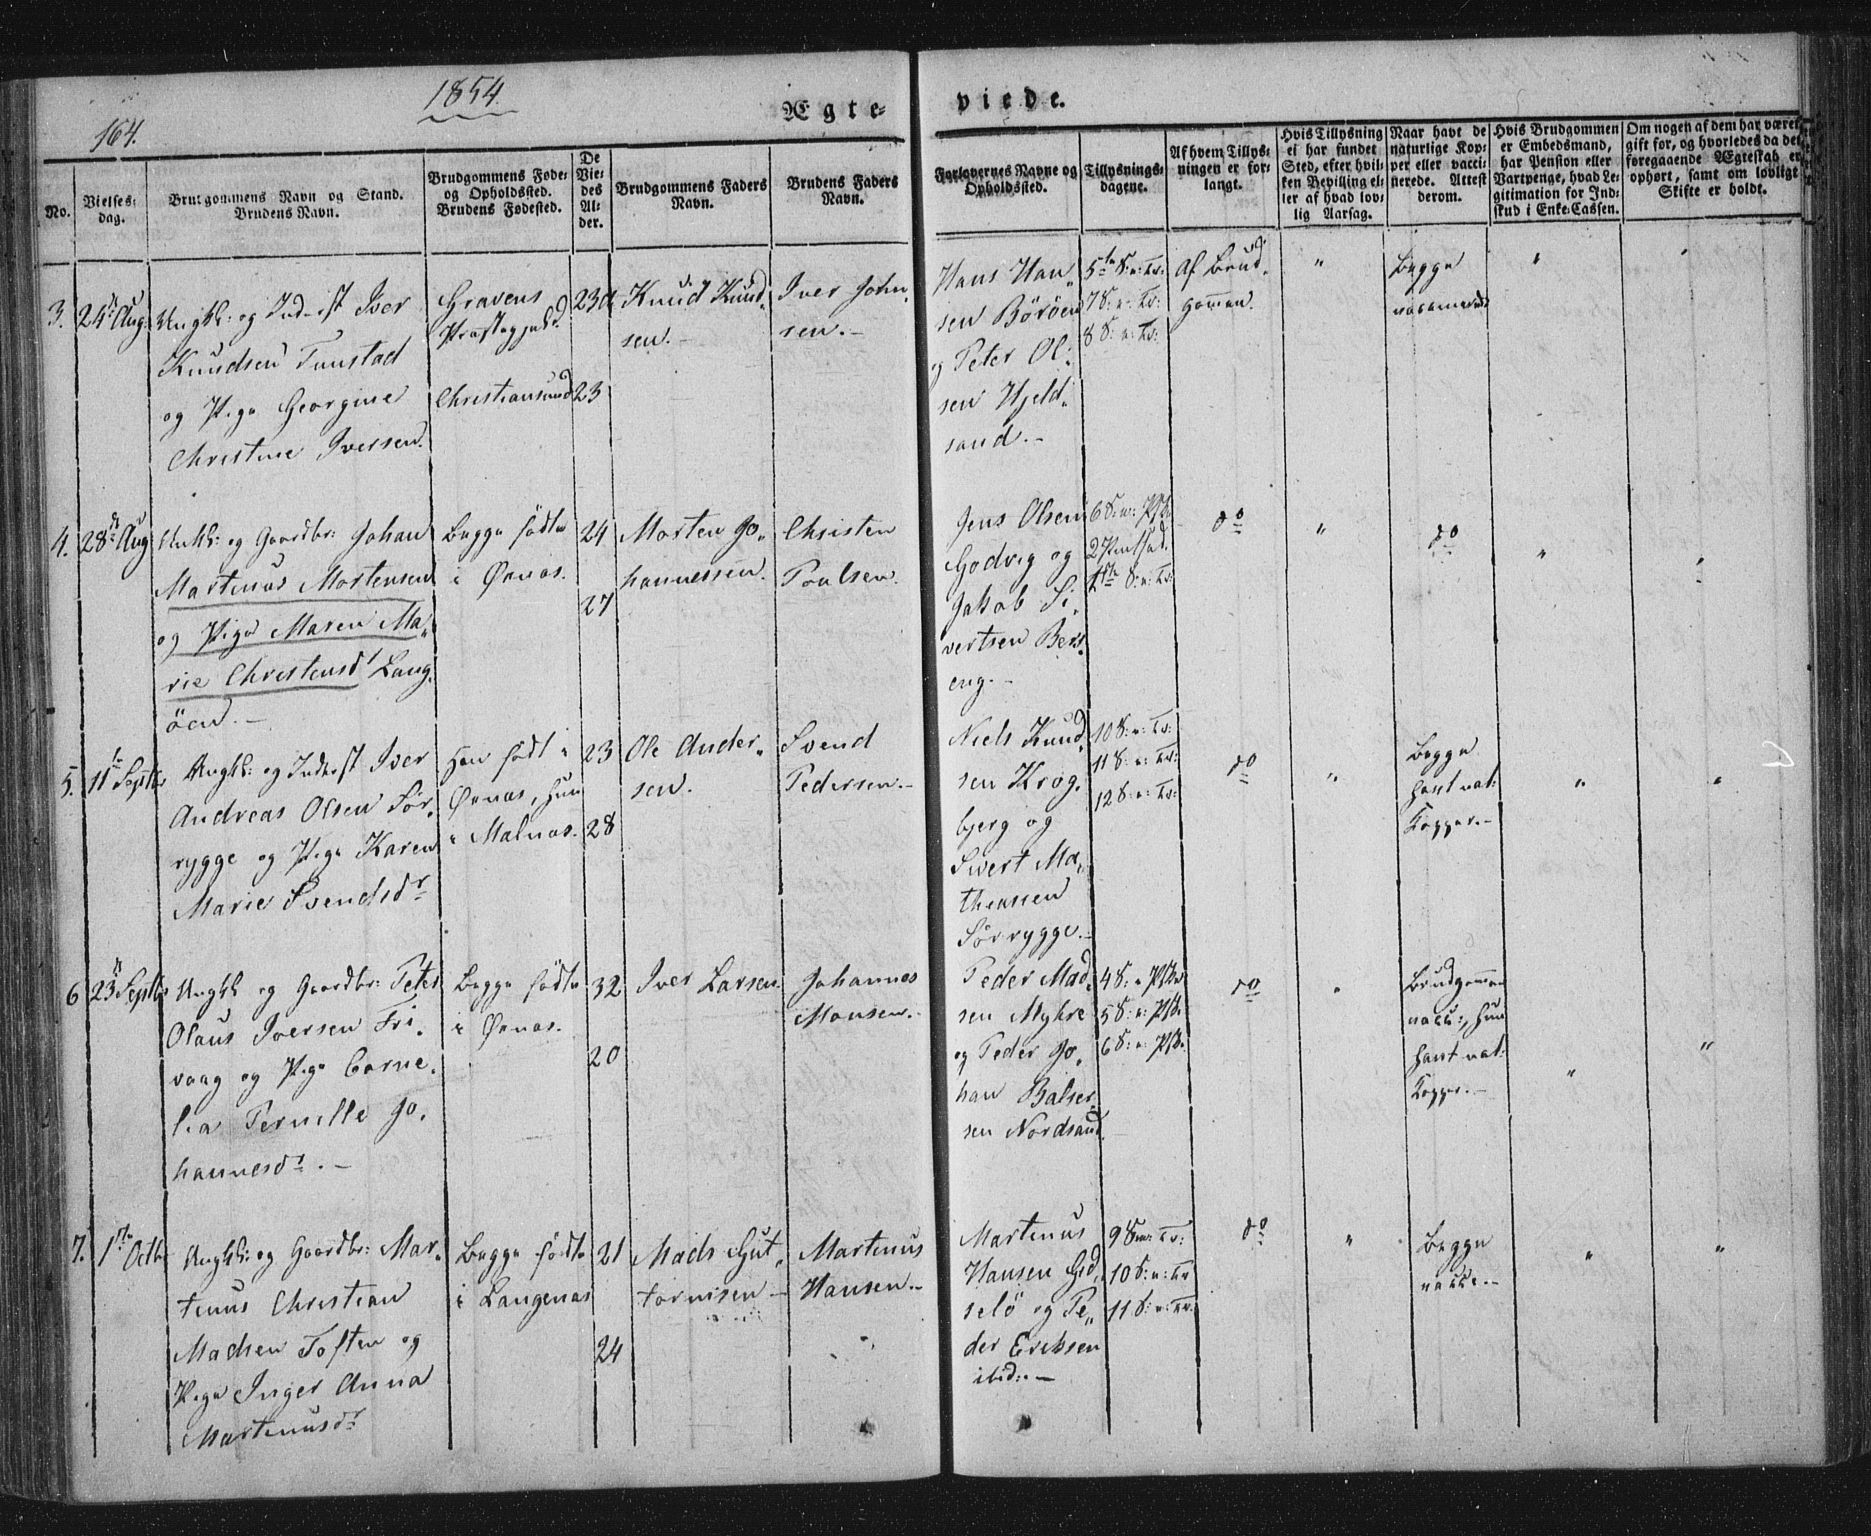 1854.
164.
Ægte-
viede.
No.
Vielses-
dag.
Brudgommens Navn og Stand.
Brudens Navn.
Brudgommens Føde-
og Opholdssted.
Brudens Fødested.
De
Vie-
des
Al-
der.
Brudgommens Faders
Navn.
Brudens Faders
Navn.
Forlovernes Navne og
Opholdssted.
Tillysnings-
dagene.
Af hvem Tillys-
ningen er for-
langt.
Hvis Tillysning
ei har fundet
Sted, efter hvil-
ken Bevilling el-
ler af hvad lov-
lig Aarsag.
Naar havt de
naturlige Kop-
per eller vacci-
nerede. Attest
derom.
Hvis Brudgommen
er Embedsmand,
har Pension eller
Vartpenge, hvad Le-
gitimation for Ind-
skud i Enke-Cassen.
Om nogen af dem har været
gift før, og hvorledes da det
foregaaende Ægteskab er
ophørt, samt om lovligt
Skifte er holdt.
3.
24de Aug:
Ungk: og Inderst Iver
Knudsen Tunstad
og Pige Georgine
Christine Iversen.
Gravens
Præstegjeld.
Christiansund
23
23
Knud Knud-
sen.-
Iver John-
sen.-
Hans Han-
sen Böröen
og Peter Ol-
sen Hjeld-
sand.-
5te S: e: Tr:
7 S: e: Tr:
8 S: e: Tr:
Af Brud-
gommen.
"
Begge
vaccinerede
"
"
4.
28de Aug
Ungk: og Gaardbr: Johan
Martinus Mortensen
og Pige Maren Ma-
rie Christensdr Lang-
öen.-
Begge födte
i Öxnæs.
24
27
Morten Jo-
hannessen.
Christen
Poulsen.
Jens Olsen
Godvig og
Jakob Si-
vertsen Bers-
eng.-
6 S: e: Psk.
2 Pintsed.
1ste S: e: Tr:
do
"
do
"
"
5.
11te Septbr
Ungk: og Inderst Iver
Andreas Olsen Sör-
rygge og Pige Karen
Marie Svendsdr
Han födt i
Öxnæs, hun
i Malnæs.
23
28
Ole Ander-
sen.
Svend
Pedersen.-
Niels Knud-
sen Krog-
bjerg og
Sivert Ma-
theussen
Sörrygge.-
10 S: e: Tr:
11 S: e: Tr:
12 S: e: Tr:
do
"
Begge
havt nat:
Kopper.-
"
"
6
23de Septbr
Ungk og Gaardbr: Peter
Olaus Iversen Fri-
vaag og Pige Corne-
lia Pernille Jo-
hannesdr.-
Begge födte
i Öxnæs.
32
20
Iver Larsen
Johannes
Monsen.-
Peder Mad-
sen Myhre
og Peder Jo-
han Balser-
sen Nordsand.
4 S: e Psk
5 S: e: Psk.
6 S: e: Psk.
do
"
Brudgommen
vacc:, hun
havt nat:
Kopper.-
"
"
7.
1ste Octb
Ungk: og Gaardbr: Mar-
tinus Christian
Madsen Toften og
Pige Inger Anna
Martinusdr
Begge födte
i Langenæs
21
24
Mads Gut-
tormsen-
Martinus
Hansen.-
Martinus
Hansen Gid-
selö og Pe-
der Eriksen
ibid:.-
9 S: e: Tr:
10 S: e: Tr
11 S: e: Tr:
do
"
Begge
vacc.-
"
"